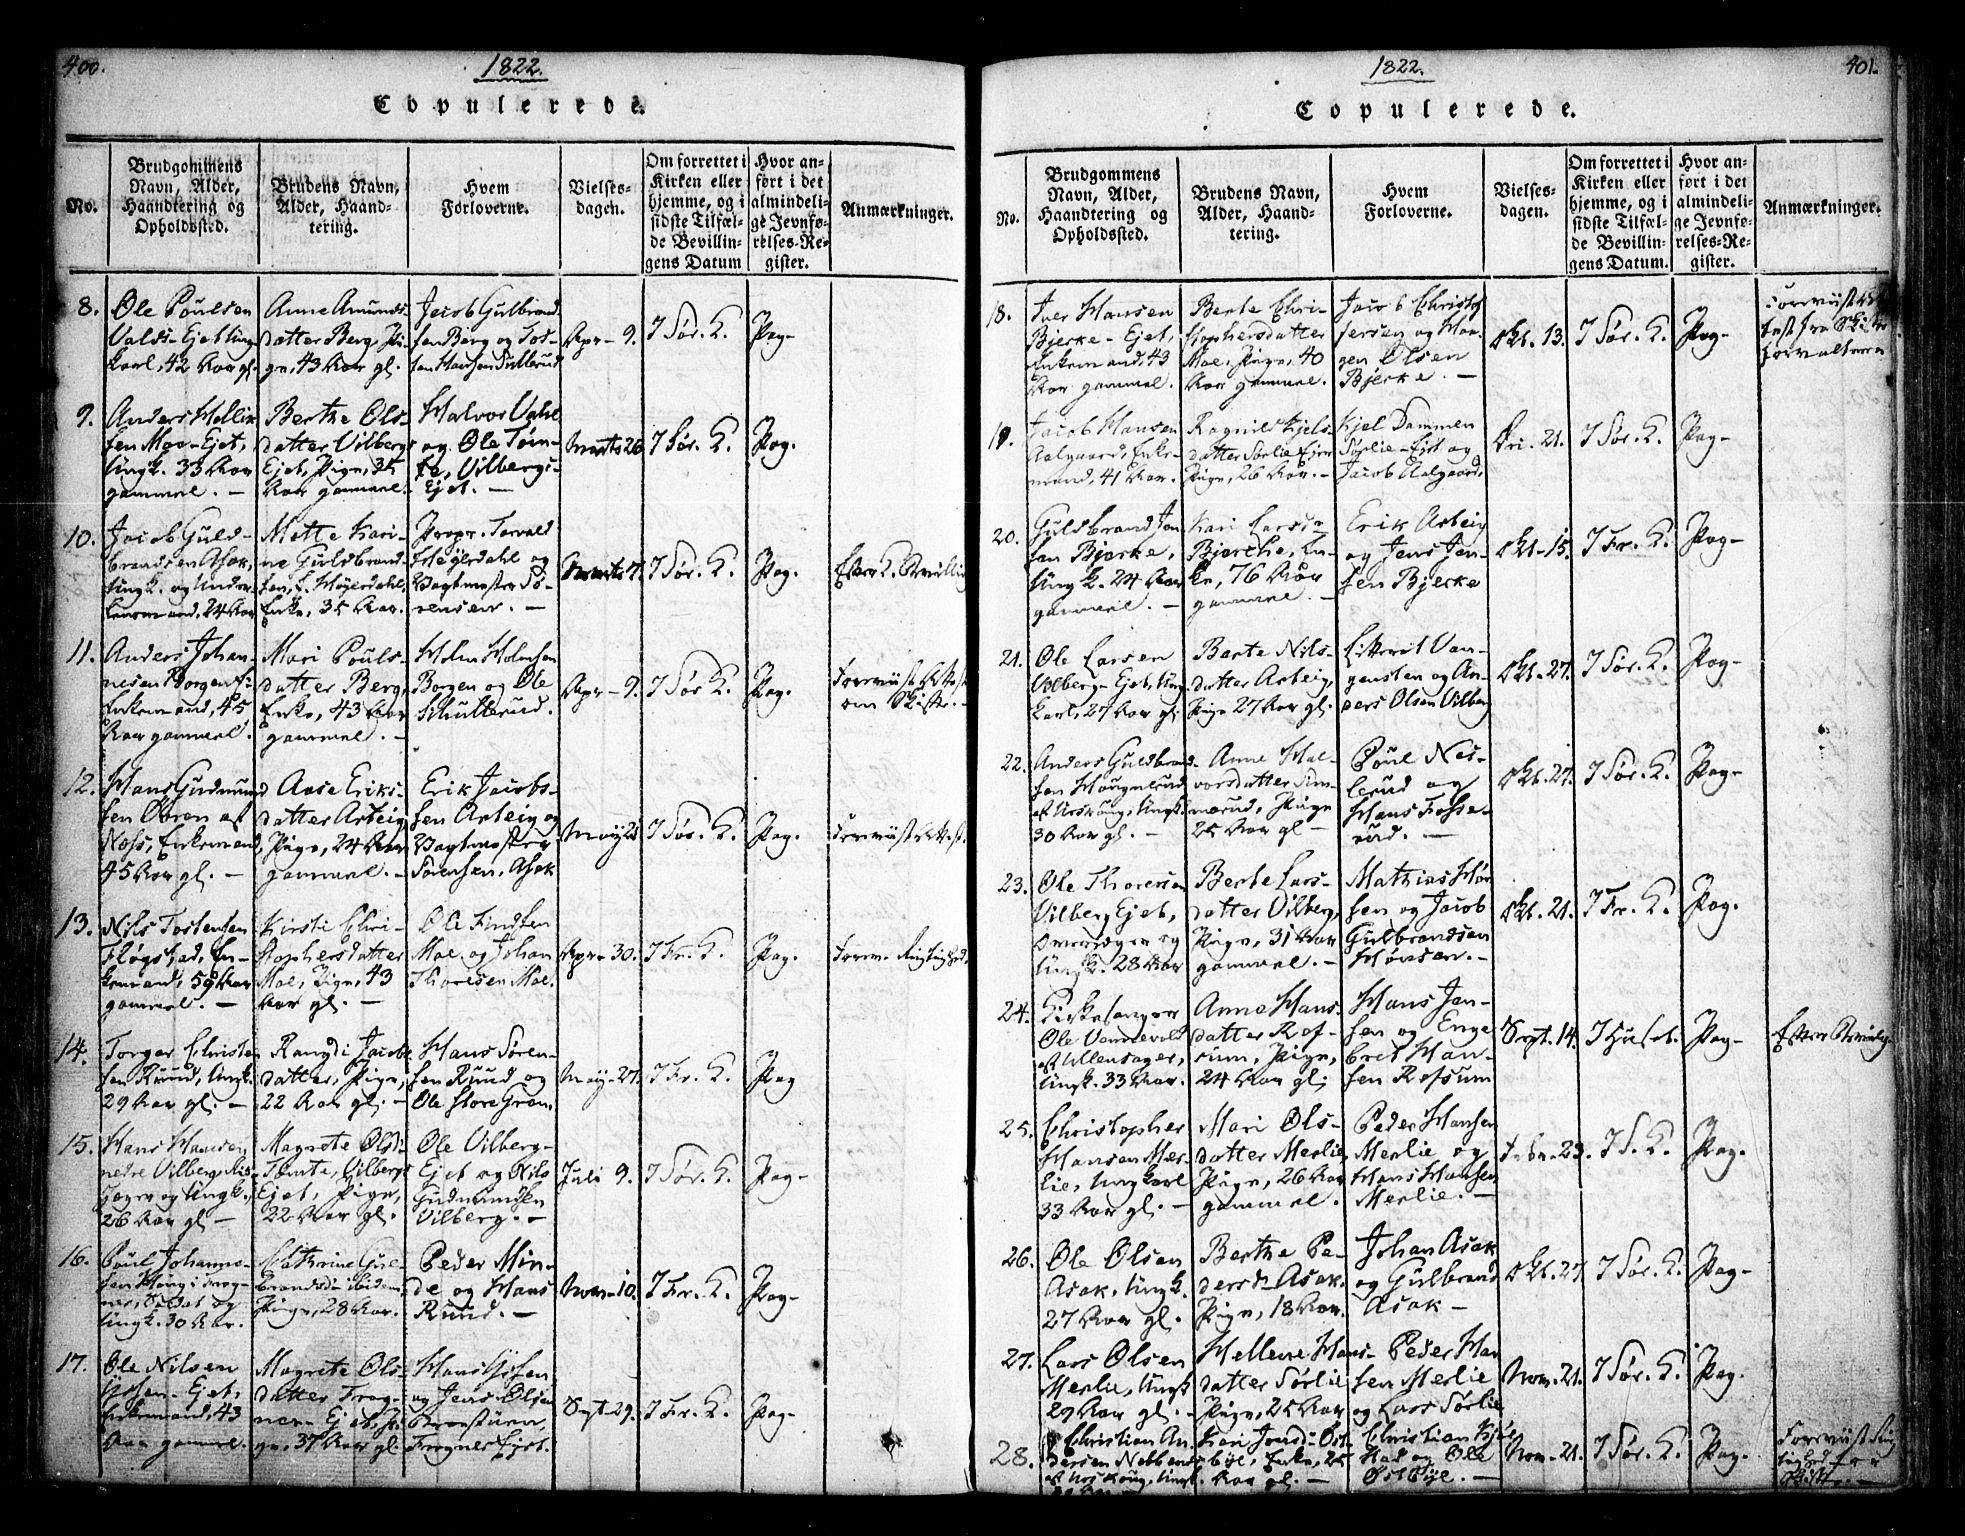 400.
1822.
Copulerede.
No.
Brudgommens
Navn, Alder,
Haandtering og
Opholdssted.
Brudens Navn,
Alder, Haand-
tering.
Hvem
Forloverne.
Vielses-
dagen.
Om forrettet i
Kirken eller
hjemme, og i
sidste Tilfæl-
de Bevillin-
gens Datum
Hvor an-
ført i det
almindeli-
ge Jevnfø-
relses-Re-
gister.
Anmærkninger.
8.
Ole Poulsen
Valds-Ejet Ung-
karl, 42 Aar gl.
Anne Amunds-
datter Berg, Pi-
ge, 43 Aar gl.
Jacob Gulbrand-
sen Berg og Tos-
ten Hansen
Apr. 9.
I Sør. K.
Pag.
9.
Moe-Ejet,
Ungk. 33 Aar
gammel. -
Berthe Ols-
datter Vilberg-
Ejet, Pige, 35
Aar gammel.
Halvor Vahl
og Ole Tøm-
te, Vilberg-
Ejet. -
Marts 26
I Sør. K.
Pag.
10.
Jacob Guld-
brandsen Asak,
Ungk. og Under-
24 Aar
Mette Kari-
ne Guldbrand-
sen, f. Høyerdahl,
Enke, 35 Aar.
Propr. Torvald
Høyerdahl og
Vagtmester Sø-
rensen. -
I Sør. K.
Pag.
Efter K. Bevilling
11.
Anders Johan-
nesen Borgen
Enkemand, 45
Aar gammel.
Mari Pouls-
datter Berg,
Enke, 43 Aar
gammel. -
Holm Holmsen
Borgen og Ole
Skullerud.
Apr. 9.
I Sør K.
Pag.
Foreviist Attest
om Skifte.
12.
Hans Gudmund
sen Øeren af
Næss, Enkemand,
45 Aar gl. -
Aase Eriks-
datter Arteig
Pige, 24 Aar
gammel. -
Erik Jacob-
sen Arteig og
Vagtmester
Sørensen, Asak
May 28
I Sør. K.
Pag.
Foreviist Attest.
13.
Nils Tostensen
Fløgstad, En-
kemand, 59 Aar
gammel. -
Kirsti Chri-
stophersdatter
Moe, Pige, 43
Aar gl. -
Ole Findsen
Moe og Johan
Thoresen Moe.
Apr. 30.
I Fr. K.
Pag.
14.
Torger Christen
sen Ruud, Ungk.
29 Aar gl. -
Rangdi Jacobs
datter, Pige,
22 Aar gl. -
Hans Søren-
sen Ruud og
Ole Store Gran.
May. 27.
I Fr. K.
Pag
15.
Hans Hansen
nedre Vilberg,
og Ungk.,
26 Aar gl. -
Magrete Olsd.
Tømte, Vilberg
Ejet, Pige,
22 Aar gl.
Ole Vilberg-
Ejet og Nils
Gudmundsen
Vilberg. -
Juli 9.
I Sør. K.
Pag-
16.
Poul Johanne-
sen
Soldat og
Ungk. 30 Aar.
Cathrine Gul-
brandsd. ibidem
Pige, 28 Aar.
Peder Min-
de og Hans
Ruud. -
Nov. 10.
I Fr. K.
Pag-
17.
Ole Nilsen
-Ejet,
Enkemand, 43
Aar gammel.
Magrete Ols-
datter Frog-
ner-Ejet, Pi-
ge, 37 Aar gl.
Hans
og Jens Olsen
Frogner Ejet.
Sept. 29.
I Fr. K.
Pag-
1822.
401.
Copulerede.
No.
Brudgommens
Navn, Alder,
Haandtering og
Opholdssted.
Brudens Navn,
Alder, Haand-
tering.
Hvem
Forloverne.
Vielses-
dagen.
Om forrettet i
Kirken eller
hjemme, og i
sidste Tilfæl-
de Bevillin-
gens Datum.
Hvor an-
ført i det
almindeli-
ge Jevnfø-
relses-Re-
gister.
Anmærkninger.
18.
Iver Hansen
Bjerke-Ejet,
Enkemand, 43
Aar gammel.
Berte Chri-
stophersdatter
Moe, Pige, 40
Aar gammel.
Jacob Christof
fersen og Haa-
gen Olsen
Bjerke. -
Okt. 13.
I Sør. K.
Pag-
Foreviist
fra Skifte
forvalteren
19.
Jacob Hansen
Aalgaard, Enke-
mand, 41 Aar.
Ragnild Kjels-
datter Sørlie Ejet
Pige, 26 Aar. -
Kjel Dammen
Sørlie-Ejet og
Jacob Aalgaard.
21.
I Sør. K.
Pag-
20.
Guldbrand Jen-
sen Bjerke,
Ungk. 24 Aar
gammel. -
Kari Larsd.
Bjerche, En-
ke, 76 Aar
gammel. -
Erik Arteig
og Jens Jen-
sen Bjerke
Okt. 15.
I Fr. K.
Pag-
21.
Ole Larsen
Vilberg-Ejet, Ung-
karl, 27 Aar gl.
Berte Nils-
datter Arteig,
Pige 27 Aar gl.
Van-
gensten og An-
ders Olsen Vilberg
Okt. 27.
I Sør. K.
Pag-
22.
Anders Guldbrand-
sen
af Urskoug, Ungk.
30 Aar gl. -
Anne Hal-
vorsdatter Sim-
merud, Pige
25 Aar gl -
Poul Nes-
lerud og
Hans Fosse-
rud. -
Okt. 27.
I Sør. K.
Pag-
23.
Ole Thoresen
Vilberg Ejet,
og
Ungk. 28 Aar
Berte Lars-
datter Vilberg,
Pige, 31 Aar
gammel. -
Mathias Høn
sen og Jacob
Gulbrandsen
Hønsen. -
Okt. 21.
I Fr. K.
Pag.
24.
Kirkesanger
Ole Vennevold
af Ullensager,
Ungk. 33 Aar.
Anne Hans-
datter Ref-
sum, Pige,
24 Aar gl;
Hans Jan-
sen og Enge
bret Han-
sen Refsum
Sept. 14.
I Huset.
Pag-
Efter Bevilg.
25.
Christopher
Hansen Mer-
lie, Ungkarl
33 Aar gl. -
Mari Ols-
datter Merlie
Pige, 26 Aar
gammel.
Peder Hansen
Merlie og
Hans Hansen
Merlie. -
Febr. 23.
I S. K.
Pag.
26.
Ole Olsen
Asak, Ungk.
27 Aar gl.
Berthe Pe-
dersd. Asak.
Pige, 18 Aar.
Johan Asak
og Gulbrand
Asak -
Okt. 27
I Sør. K.
Pag-
27.
Lars Olsen
Merlie, Ungk
29 Aar gl. -
Hellene Hans-
datter Sørlie
Pige, 25 Aar
Peder Han
sen Merlie
og Lars Sørlie
Nov. 21.
I Sør. K.
Pag.
28.
Christian An-
dersen
af Urskoug, Ungk.
Kari Jensd. Øst-
bye, Enke, 25
Aar gl. -
Christian
og Ole
Østbye. -
Nov. 21.
I Sør. K.
Pag.
Foreviist
Skifte.